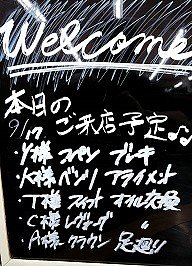 Welcome
本日の
9/17 ご来店予定♪
・Y様 スペシ ブレーキ
・K様 ベンツ アライメント
・T様 フィット オイル交換
・C様 レヴォーグ 〃
・A様 クラウン 足廻り